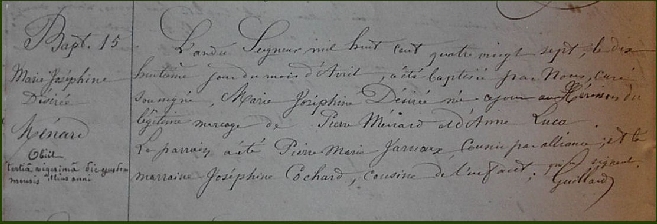 Bapt. 15
Marie Joséphine
Désirée
Ménard
Obiit
mensis
L'an du Seigneur mil huit cent quatre vingt sept, le dix
huitième jour du mois d'Avril, a été baptisée par Nous, Curé
soussigné, Marie Joséphine Désirée née ce jour au du
légitime mariage de Pierre Ménard et d'Anne Luco.
Le parrain a été Pierre Marie Jarneaux, cousin par alliance, et la
marraine Joséphine Cochard, cousine de l'enfant, qui signent.
Guillard